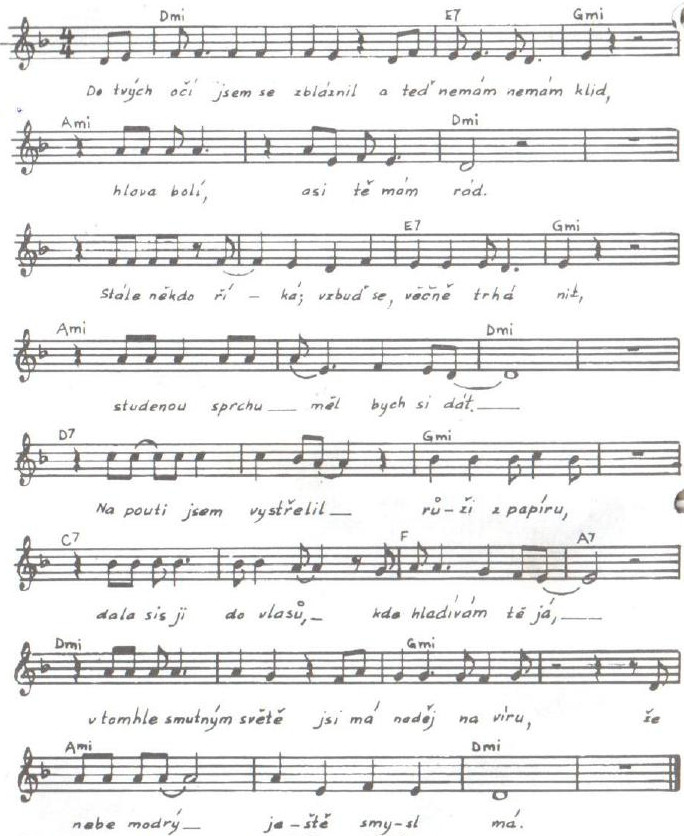 Dmi E7 Gmi
4
4
Do tvých očí jsem se zbláznil a teď nemám nemám klid,
Ami Dmi
hlava bolí, asi tě mám rád.
E7 Gmi
Stále někdo ří - ká; vzbuď se, věčně trhá nit,
Ami Dmi
studenou sprchu__ měl bych si dát.__
D7 Gmi
Na pouti jsem vystřelil__ rů-ži z papíru,
C7 F A7
dala sis ji do vlasů,_ kde hladívám tě já,__
Dmi Gmi
v tomhle smutným světě jsi má naděj na víru, že
Ami Dmi
nebe modrý__ je-ště smy-sl má.